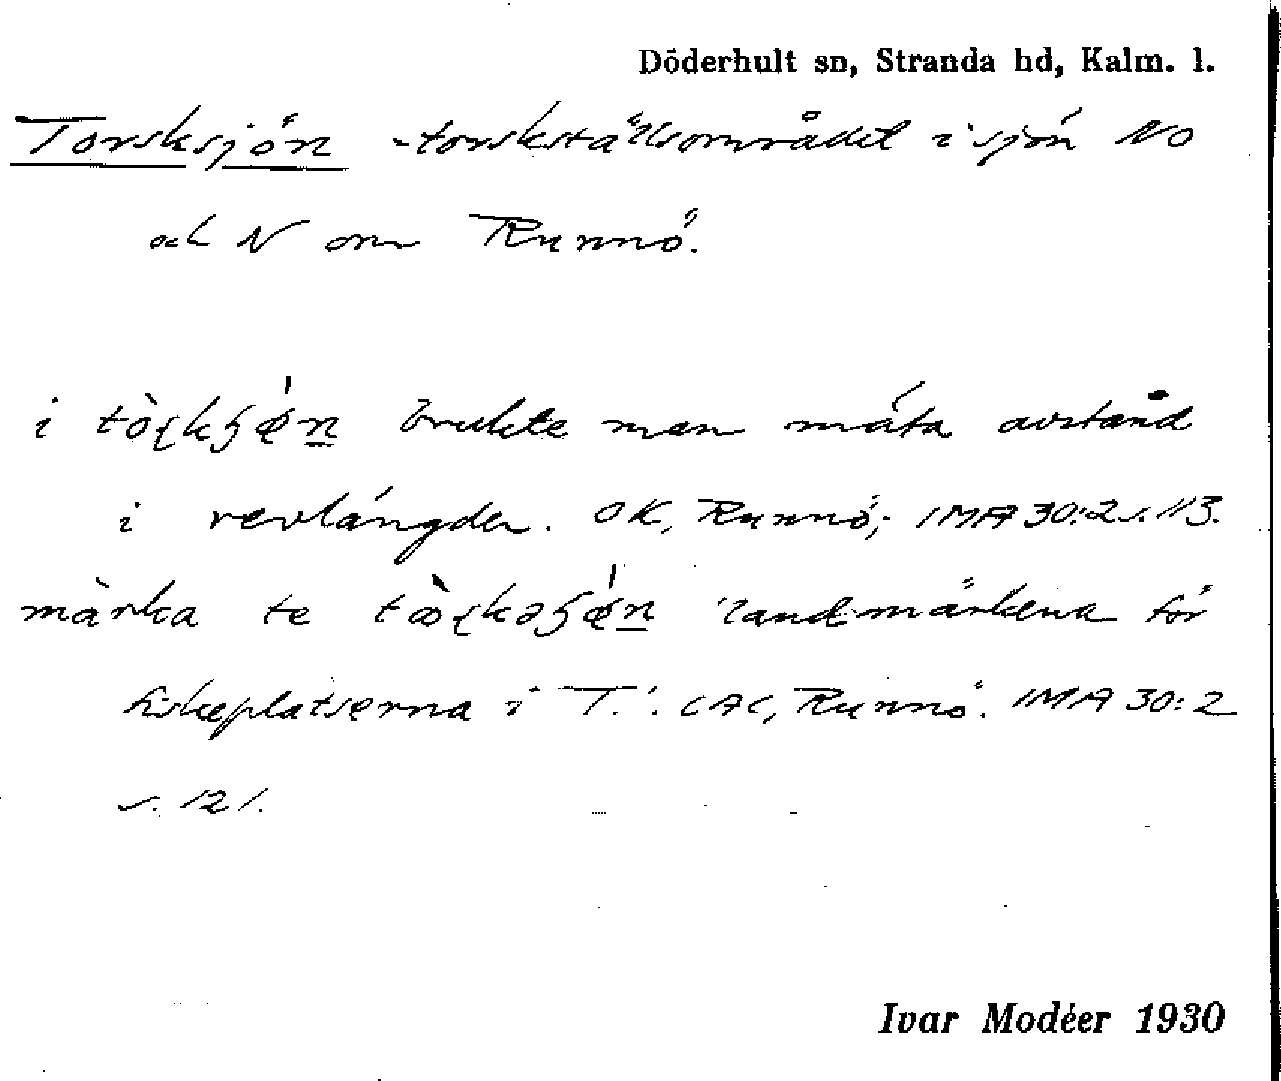 Döderhult sn, Stranda hd, Kalm. l.
Torsksjön -torskställsområdet i sjön NO
och N om Runnö.
i brukte man mäta avstånd
i revlängder. OK, Runnö; IMA 30:2 s. 113.
märka te 'landmärkena för
fiskeplatserna i T.'. CAC, Runnö. IMA 30:2
s. 121.
Ivar Modéer 1930